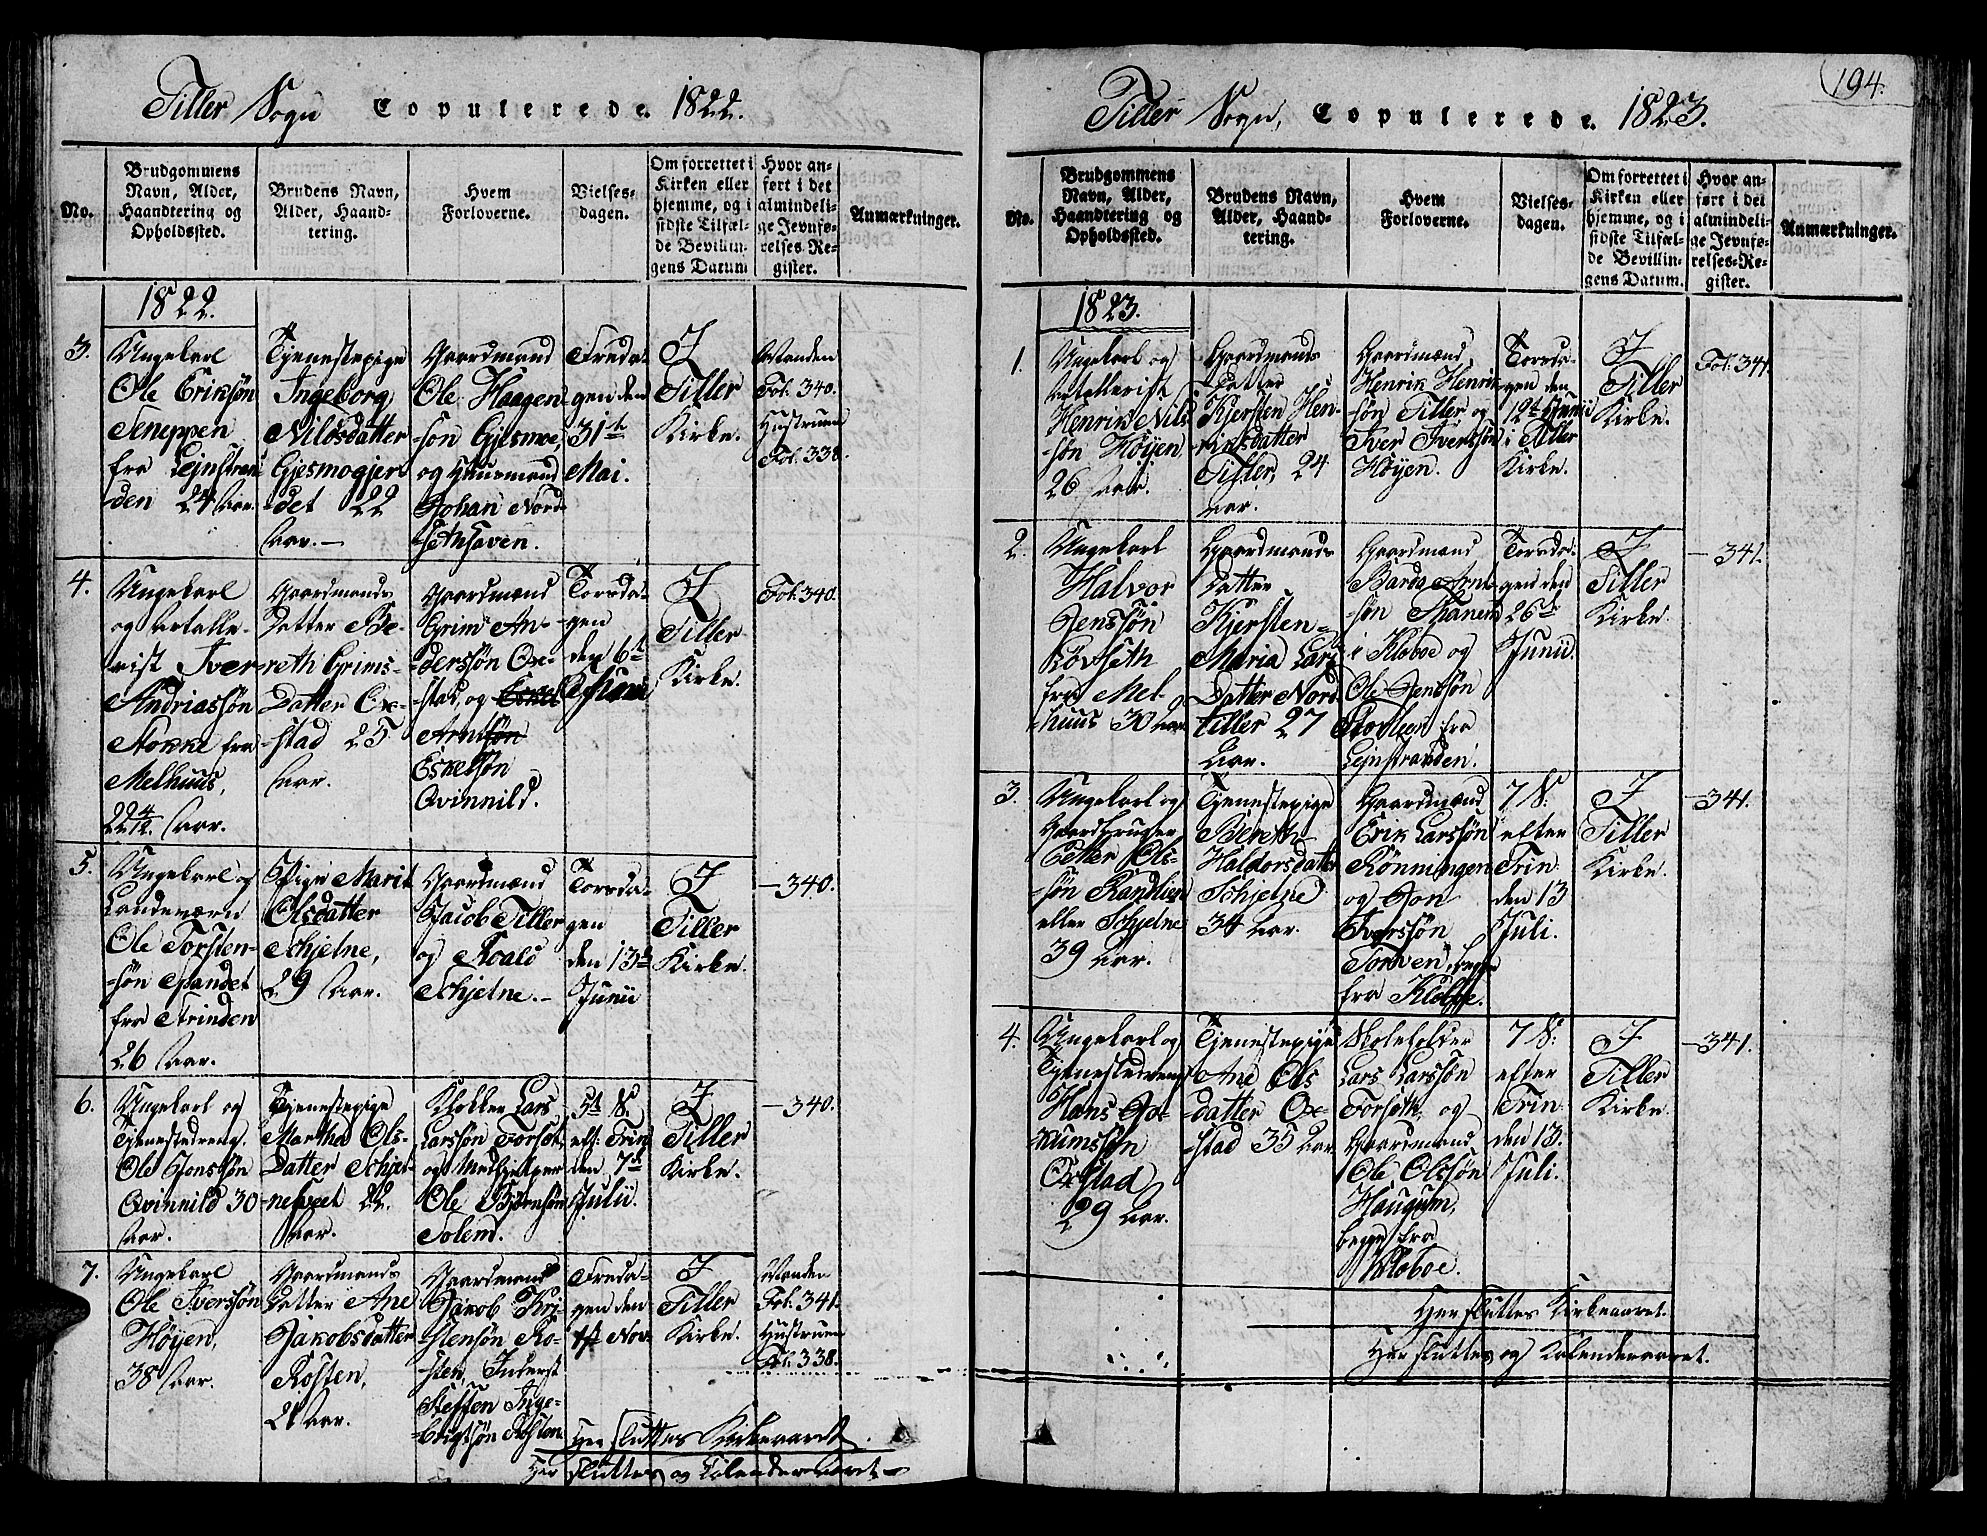 Tiller Sogn Copulerede 1822.
No.
Brudgommens
Navn, Alder,
Haandtering og
Opholdssted.
Brudens Navn,
Alder, Haand-
tering.
Hvem
Forloverne.
Vielses-
dagen.
Om forrettet i
Kirken eller
hjemme, og i
sidste Tilfæl-
de Bevillin-
gens Datum
Hvor an-
ført i det
almindeli-
ge Jevnfø-
relses-Re-
gister.
Anmærkninger.
1822.
3.
Ungekarl
Ole Eriksøn
Teneppen
fra Lejnstran-
den 24 Aar.
Tjenestepige
Ingeborg
Nilsdatter
Gjesmogjer-
det 22
Aar.
Gaardmand
Ole Haagen-
søn Gjesmoe
og Huusmand
Johan Nord-
sethhaven.
Freda-
gen den
31te
Mai.
I
Tiller
Kirke.
Manden
Fol. 340.
Hustruen
Fol. 338.
4.
Ungekarl
og Artille-
rist Iver
Andriassøn
Stokke fra
Melhuus,
22 4/12 Aar.
Gaardmands
Datter Be-
reth Grims-
Datter Oxe-
stad 25
Aar.
Gaardmænd
Grim An-
derssøn Oxe-
stad, og Eskel
Arntsøn
Eskelsøn
Qvinnild.
Torsda-
gen
den 6te
Junii
I
Tiller
Kirke.
Fol. 340.
5.
Ungekarl og
Landeværn
Ole Torsten-
søn Spandet
fra Strinden
26 Aar.
Pige Marit
Olsdatter
Schjelne,
29 Aar.
Gaardmænd
Jacob Tiller
og Roald
Schjelne.
Torsda-
gen
den 13de
Junii
I
Tiller
Kirke.
340.
6.
Ungekarl og
Tjenestedreng
Ole Jonssøn
Qvinnild 30
Aar.
Tjenestepige
Martha Ols-
Datter Schjel-
nefveet 22
Aar.
Klokker Lars
Larssøn Forset
og Medhjelper
Ole Bjørnsøn
Solem.
5te S.
eft: Trin:
den 7de
Julii.
I
Tiller
Kirke.
340.
7.
Ungekarl
Ole Iverssøn
Høyen,
38 Aar.
Gaardmands
Datter Ane
Jakobsdatter
Rosten,
21 Aar.
Gaardmand
Jakob Kri-
stensøn Ro-
sten, Inderst
Steffen Inge-
brigtsøn Rosten
Freda-
gen den
1ste Nov.
I
Tiller
Kirke.
Manden
Fol. 341.
Hustruen
Fol. 338.
Her sluttes Kirkeaaret.
Her sluttes og Calenderaaret
194.
Tiller Sogn, Copulerede 1823.
No.
Brudgommens
Navn, Alder,
Haandtering og
Opholdssted.
Brudens Navn,
Alder, Haand-
tering.
Hvem
Forloverne.
Vielses-
dagen.
Om forrettet i
Kirken eller
hjemme, og i
sidste Tilfæl-
de Bevillin-
gens Datum.
Hvor an-
ført i det
almindeli-
ge Jevnfø-
relses-Re-
gister.
Anmærkninger.
1823.
1.
Ungekarl og
Artillerist
Henrik Nils-
søn Høyen
26 Aar.
Gaardmands
Datter
Kjersten Hen-
riksdatter
Tiller, 24
Aar.
Gaardmænd
Henrik Henrik-
søn Tiller og
Iver Iverssøn
Høyen.
Torsda-
gen den
12te Junii
i Tiller
Kirke.
I
Tiller
Kirke.
Fol. 341.
2.
Ungekarl
Halvor
Jenssøn
Løvseth
fra Mel-
huus 30 Aar
Gaardmands
Datter
Kjersten-
Maria Lars
Datter Nord-
tiller 27
Aar.
Gaardmænd
Baroe Arnt-
søn Thanem
i Klæboe og
Ole Jenssøn
fra
Lejnstranden.
Torsda-
gen den
26de
Junii.
I
Tiller
Kirke.
341.
3.
Ungekarl og
Gaardbruger
Petter Ols-
søn Randlien
eller Schjelne
39 Aar.
Tjenestepige
Bereth
Haldorsdatter
Schjelne
34 Aar.
Gaardmænd
Erik Larssøn
Rønningen
og Jon
Iverssøn
Torven, begge
fra Klæboe.
7 S.
efter
Trin.
den 13
Juli.
I
Tiller
Kirke.
341.
4.
Ungekarl og
Tjenestedreng
Hans Jo-
kumssøn
Oxstad
29 Aar.
Tjenestepige
Ane Ols
datter Oxe-
stad 35 Aar
Skoleholder
Lars Larssøn
Forseth, og
Gaardmand
Ole Olssøn
Haugum,
begge fra
Klæboe.
7 S.
efter
Trin
den 13.
Juli.
I
Tiller
Kirke.
341.
Her sluttes Kirkeaaret.
Her sluttes og Calenderaaret.